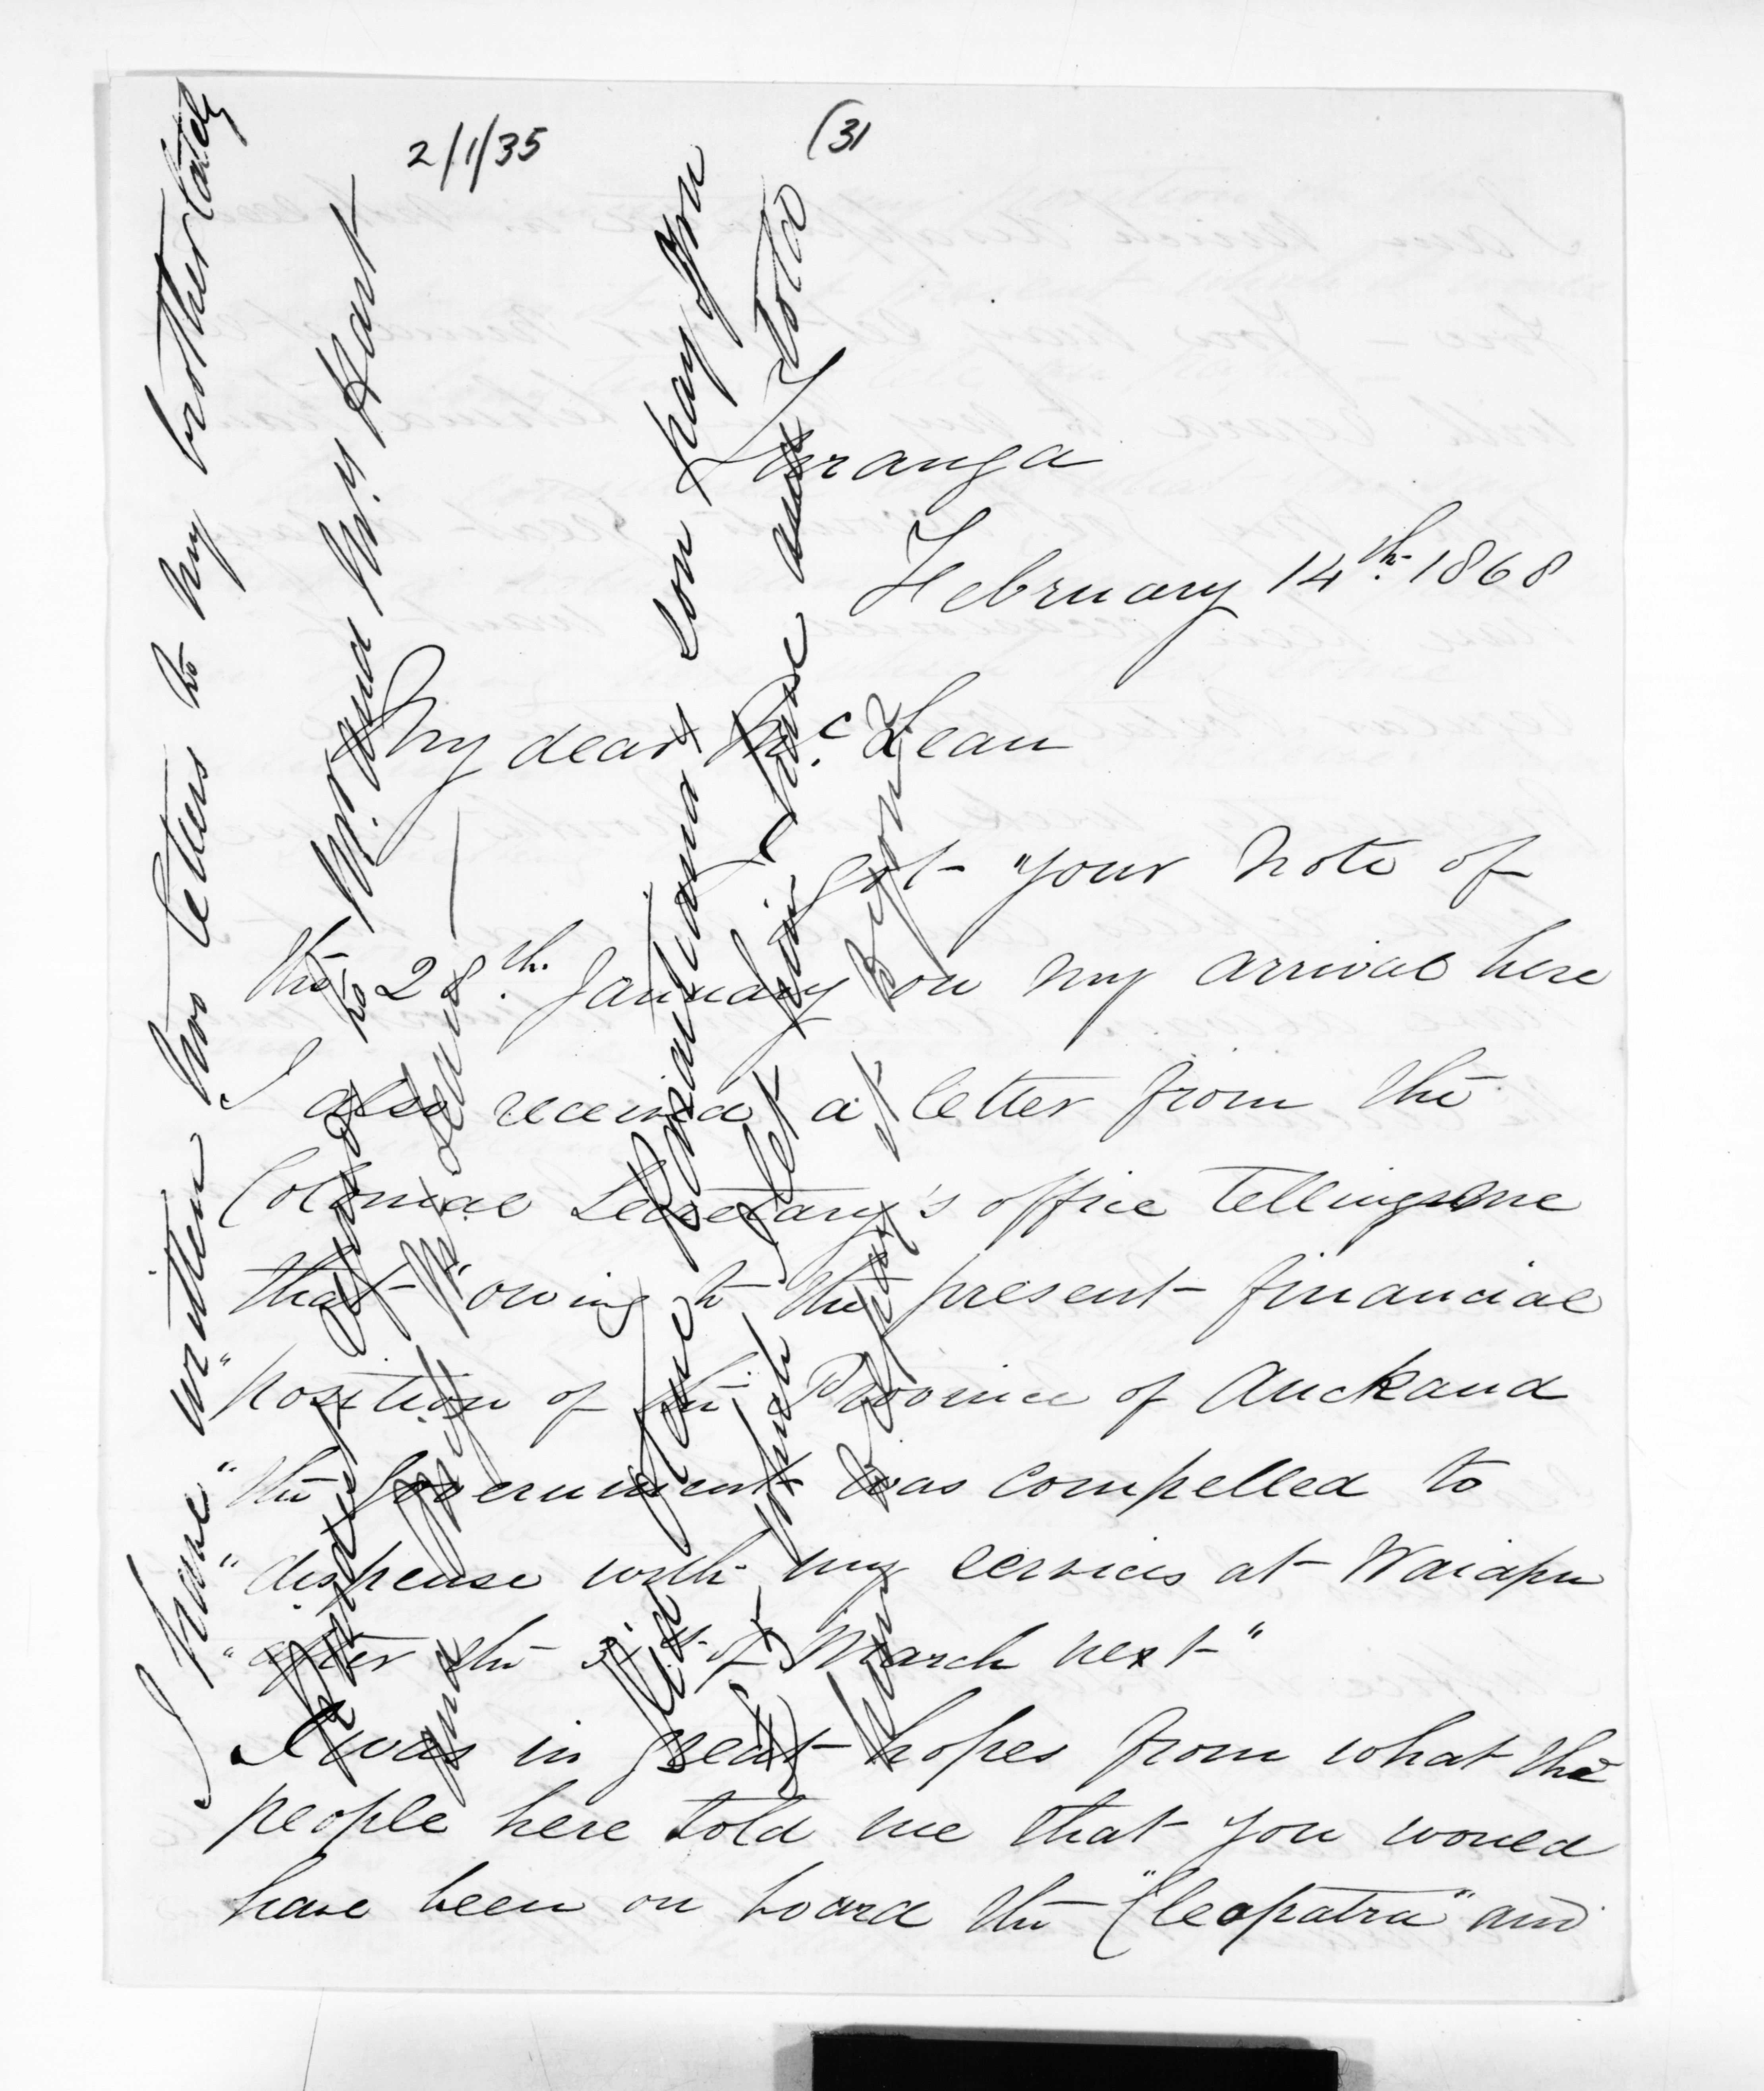 2/1/35
(31
Turanga
February 14th 1868
My dear McLean
I got your note of
the 28th January on my arrival here
I also received a letter from the
Colonial Secretary's office telling me
that "owing to the present financial
"position of the Province of Auckand
"the Government was compelled to
"dispense with my services at Waiapu
"after the 31st of March next"
I was in great hopes from what the
people here told me that you would
have been on board the "Cleopatra" and
I have written two letters to my brother lately
kindest regards to Mr and Mrs Hart
and
son pay you
I let him have and told